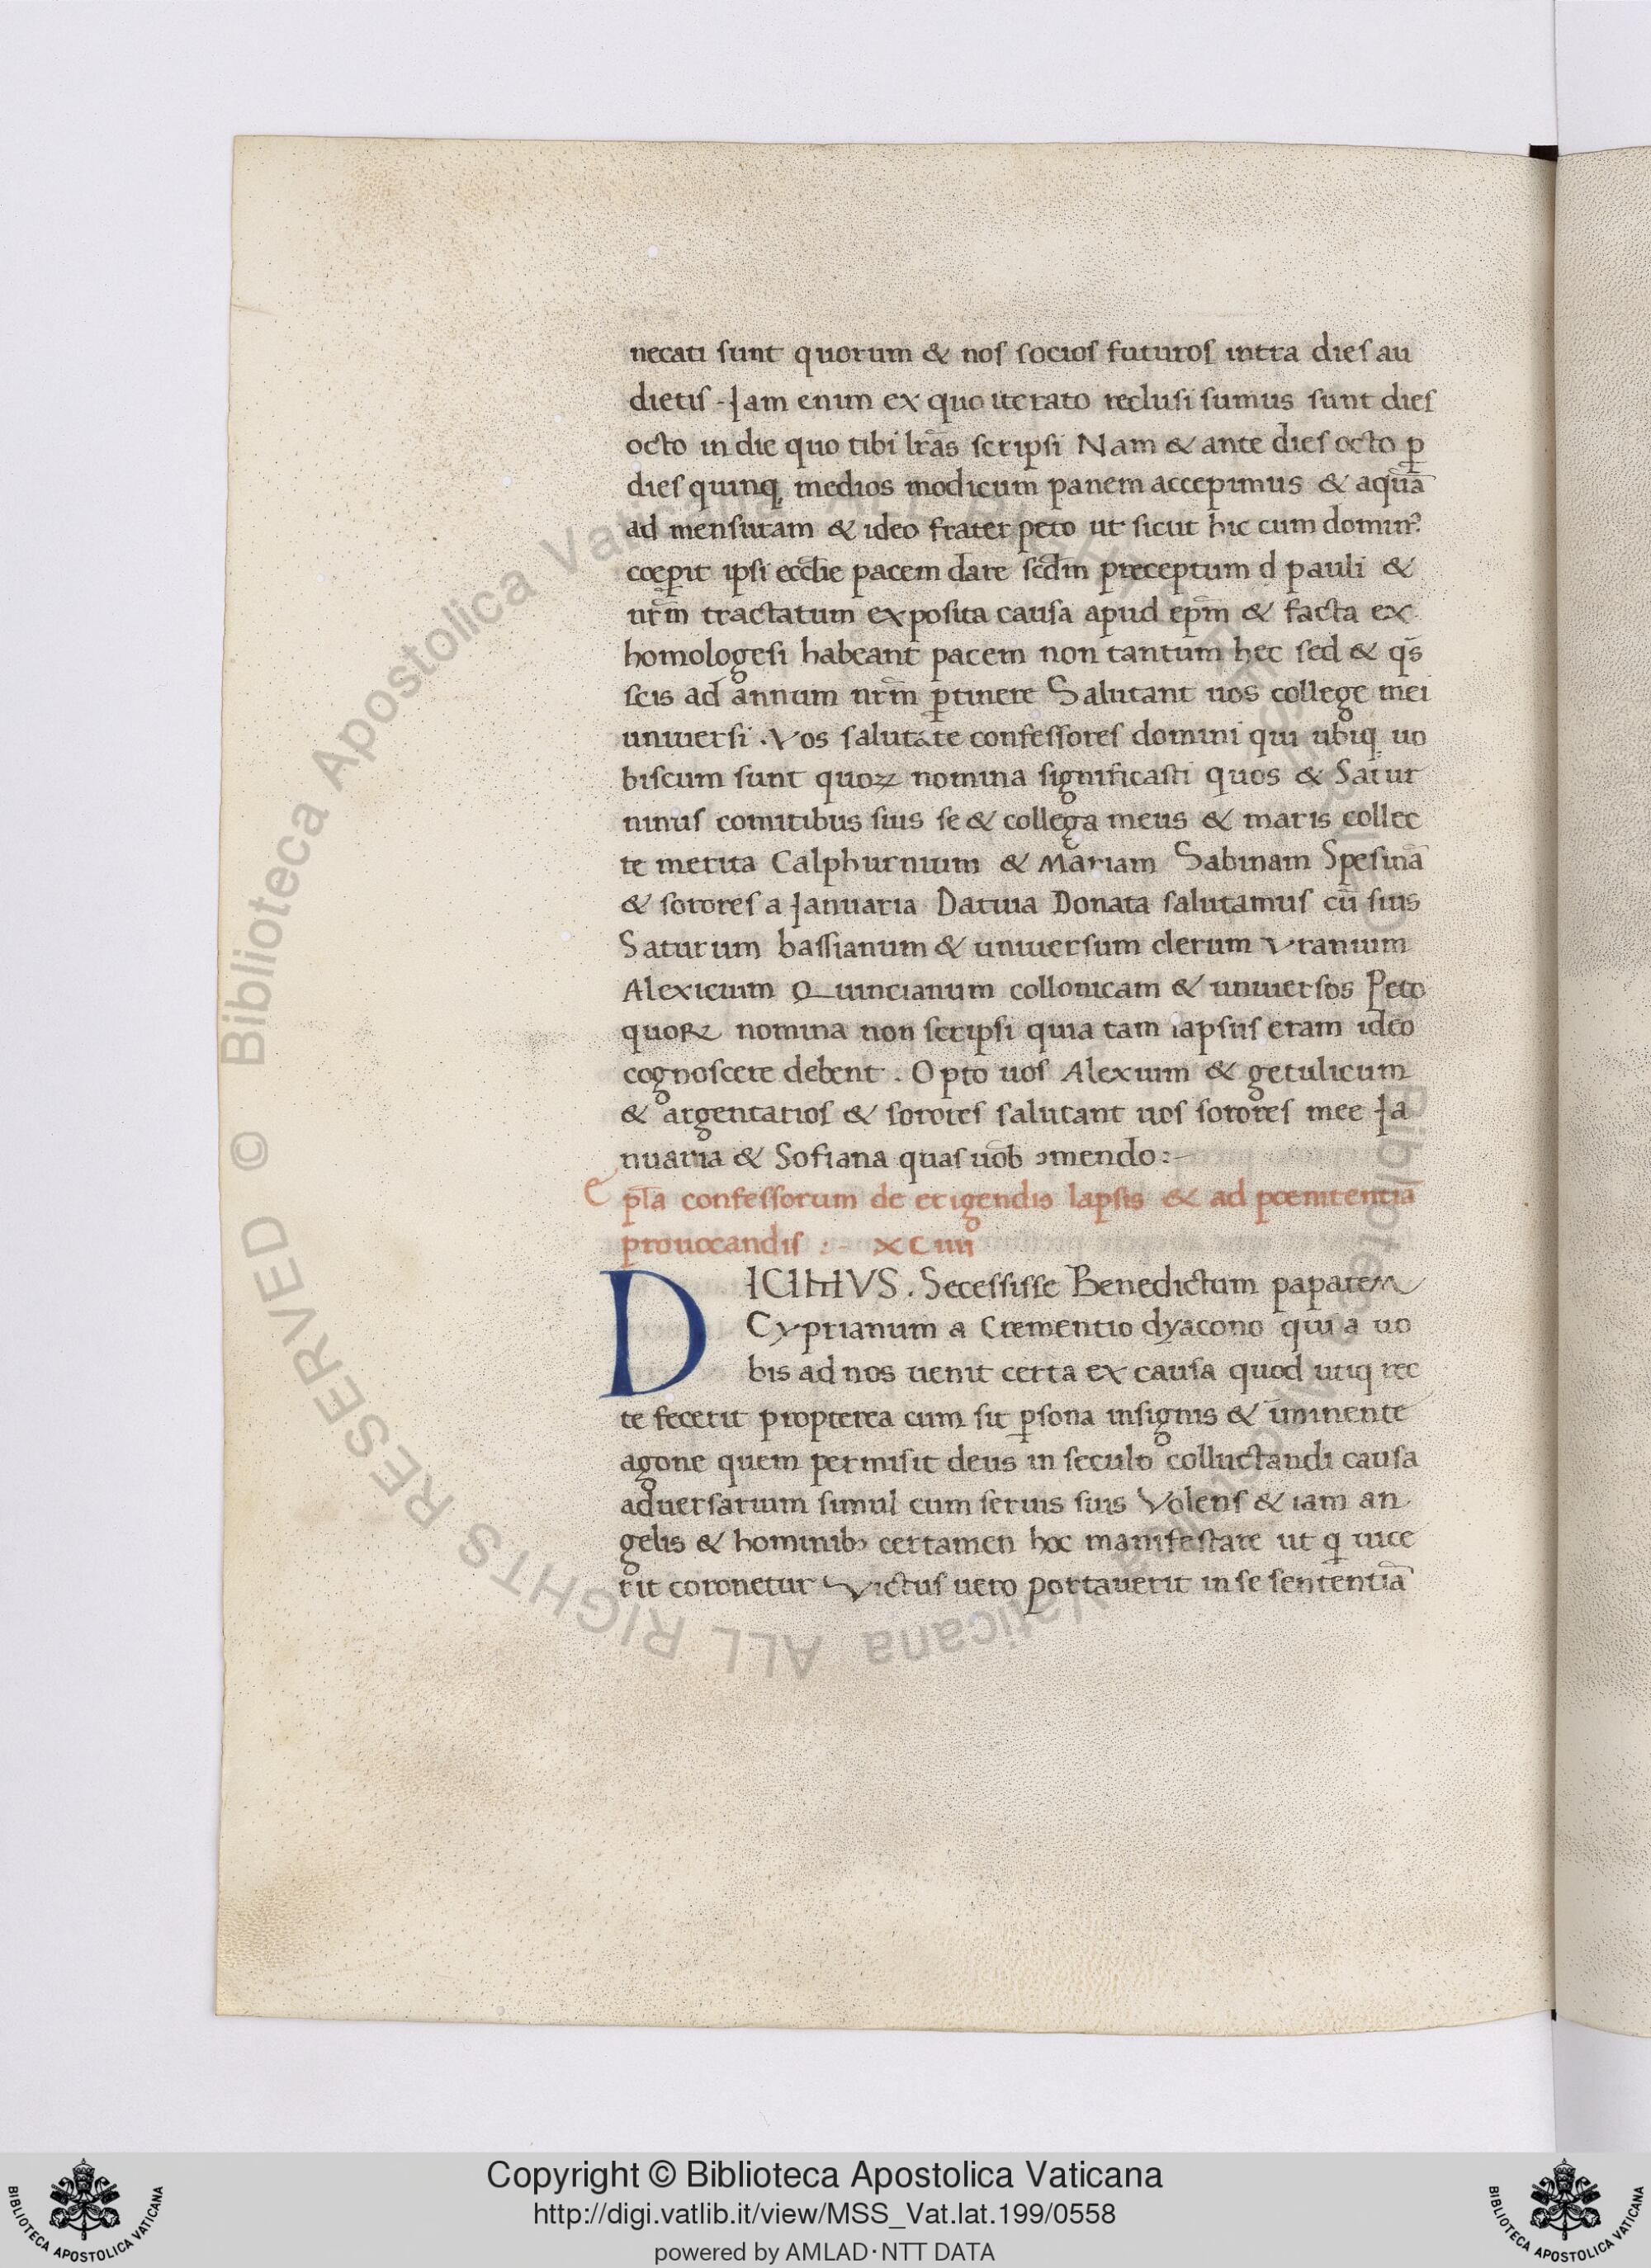 necati sunt quorum & nos socios futuros intra dies au
dietis. Iam enim ex quo iterato reclusi sumus sunt dies
octo in die quo tibi lr̅as scripsi Nam & ante dies octo ꝑ
dies quinq, medios modicum panem accepimus & aqua̅
ad mensuram & ideo frater peto ut sicut hic cum dominꝰ
cœperit ipsi eccl̅ie pacem dare scd̅m preceptum d pauli &
nr̅m tractatum exposita causa apud ep̅m & facta ex
homologesi habeant pacem non tantum hec sed & q̅s
scis ad annum nr̅m ꝑtinere Salutant uos college mei
uniuersi. Vos salutate confessores domini qui ubiq, uo
biscum sunt quoꝝ nomina significasti quos & Satur
ninus comitibus suis se & collega meus & maris collec
te merita Calphurnium & Mariam Sabinam Spesina̅
& sorores a Ianuaria Datiua Donata salutamus cu̅ suis
Saturum bassianum & uniuersum clerum Vranium
Alexicium Quincianum collonicam & uniuersos Peto
quoꝝ nomina non scripsi quia tam lapsus eram ideo
cognoscere debent. Opto uos Alexium & getulicum
& argentarios & sorores salutant uos sorores mee Ia
nuaria & Sofiana quas uob̅ ꝯmendo:-
Epl̅a confessorum de erigendis lapsis & ad pœnitentia̅
prouocandis :- XCIIII
DICIHVS. Secessisse Benedictum papatem
Cyprianum a Crementio dyacono qui a uo
bis ad nos uenit certa ex causa quod utiq rec
te fecerit propterea cum sit ꝑsona insignis & i̅minente
agone quem permisit deus in seculo colluctandi causa
aduersarium simul cum seruis suis Volens & iam an
gelis & hominibꝰ certamen hoc manifestare ut q̅ uice
rit coronetur Victus uero portauerit in se sententia̅
© Biblioteca Apostolica Vaticana ALL RIGHTS RESERVED
Copyright © Biblioteca Apostolica Vaticana
http://digi.vatlib.it/view/MSS_Vat.lat.199/0558
powered by AMLAD·NTT DATA
BIBLIOTECA APOSTOLICA VATICANA
BIBLIOTECA APOSTOLICA VATICANA